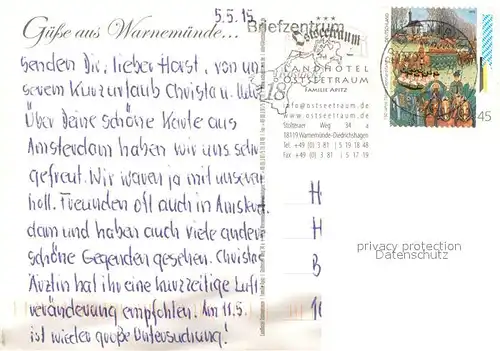 5.5.15
Grüße aus Warnemünde...
senden Dir, lieber Horst, von un-
serem Kurzurlaub Christa u.
Über Deine schöne Karte aus
Amsterdam haben wir uns sehr
gefreut. Wir waren ja mit unseren
holl. Freunden oft auch in Amster-
dam und haben auch viele andere
schöne Gegenden gesehen. Christas
Ärztin hat ihr eine kurzzeitige Luft-
veränderung empfohlen. Am 11.5.
ist wieder große Untersuchung!
Briefzentrum
18
Ostseetraum
LANDHOTEL
OSTSEETRAUM
FAMILIE ARTZ
info@ostseetraum.de
www.ostseetraum.de
Stolteraer Weg 34 a
18119 Warnemünde-Diedrichshagen
Tel. +49 (0) 3 81 | 5 19 18 48
Fax +49 (0) 3 81 | 5 17 19
DEUTSCHLAND
45
H
H
B
privacy protection
Datenschutz